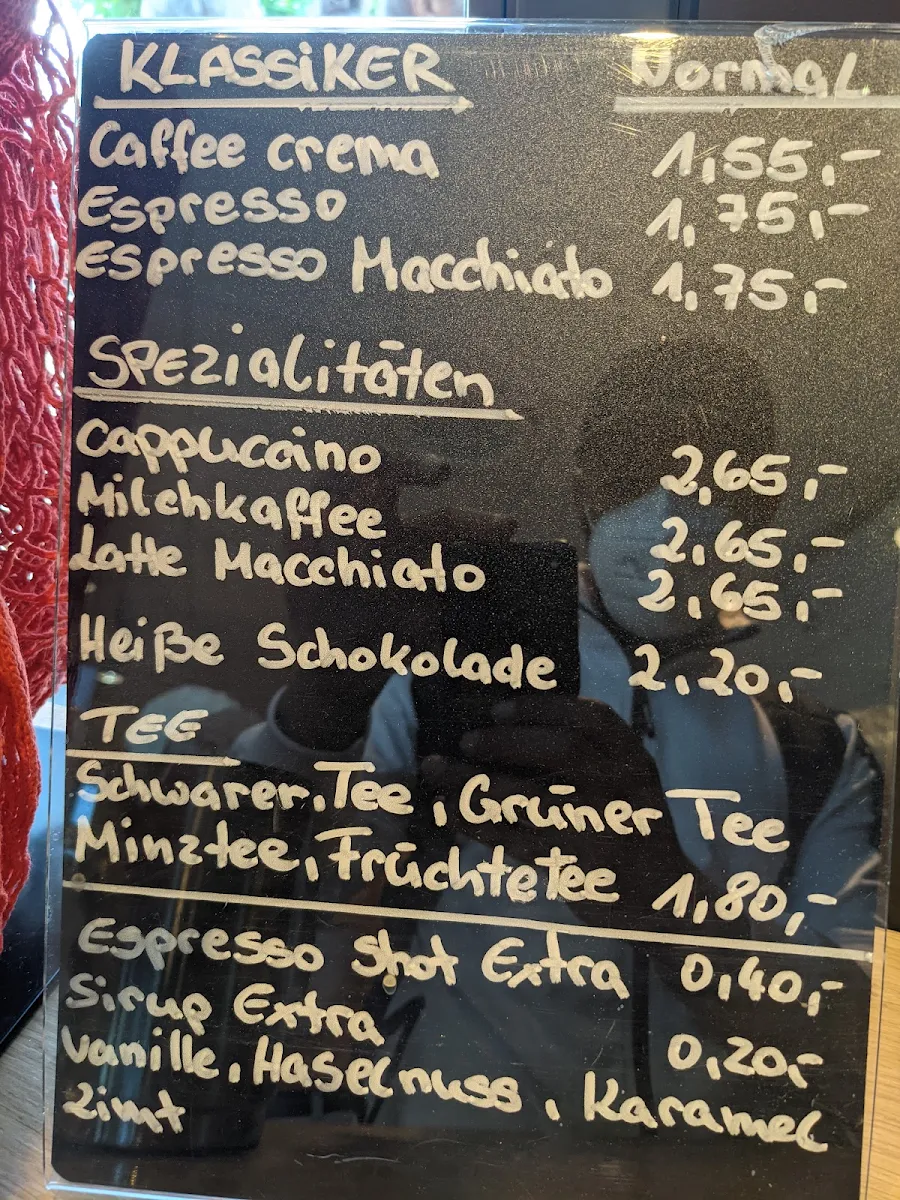 KLASSiKER Normal
Caffee crema 1,55,-
Espresso 1,75,-
Espresso Macchiato 1,75,-
SPEZialitäten
Cappuccino 2,65,-
Milchkaffee 2,65,-
Latte Macchiato 2,65,-
Heiße Schokolade 2,20,-
TEE
Schwarer,Tee, Grüner Tee
Minztee, FrüchteTee 1,80,-
Espresso Shot Extra 0,40,-
Sirup Extra 0,20,-
Vanille, Haselnuss, Karamel
Zimt